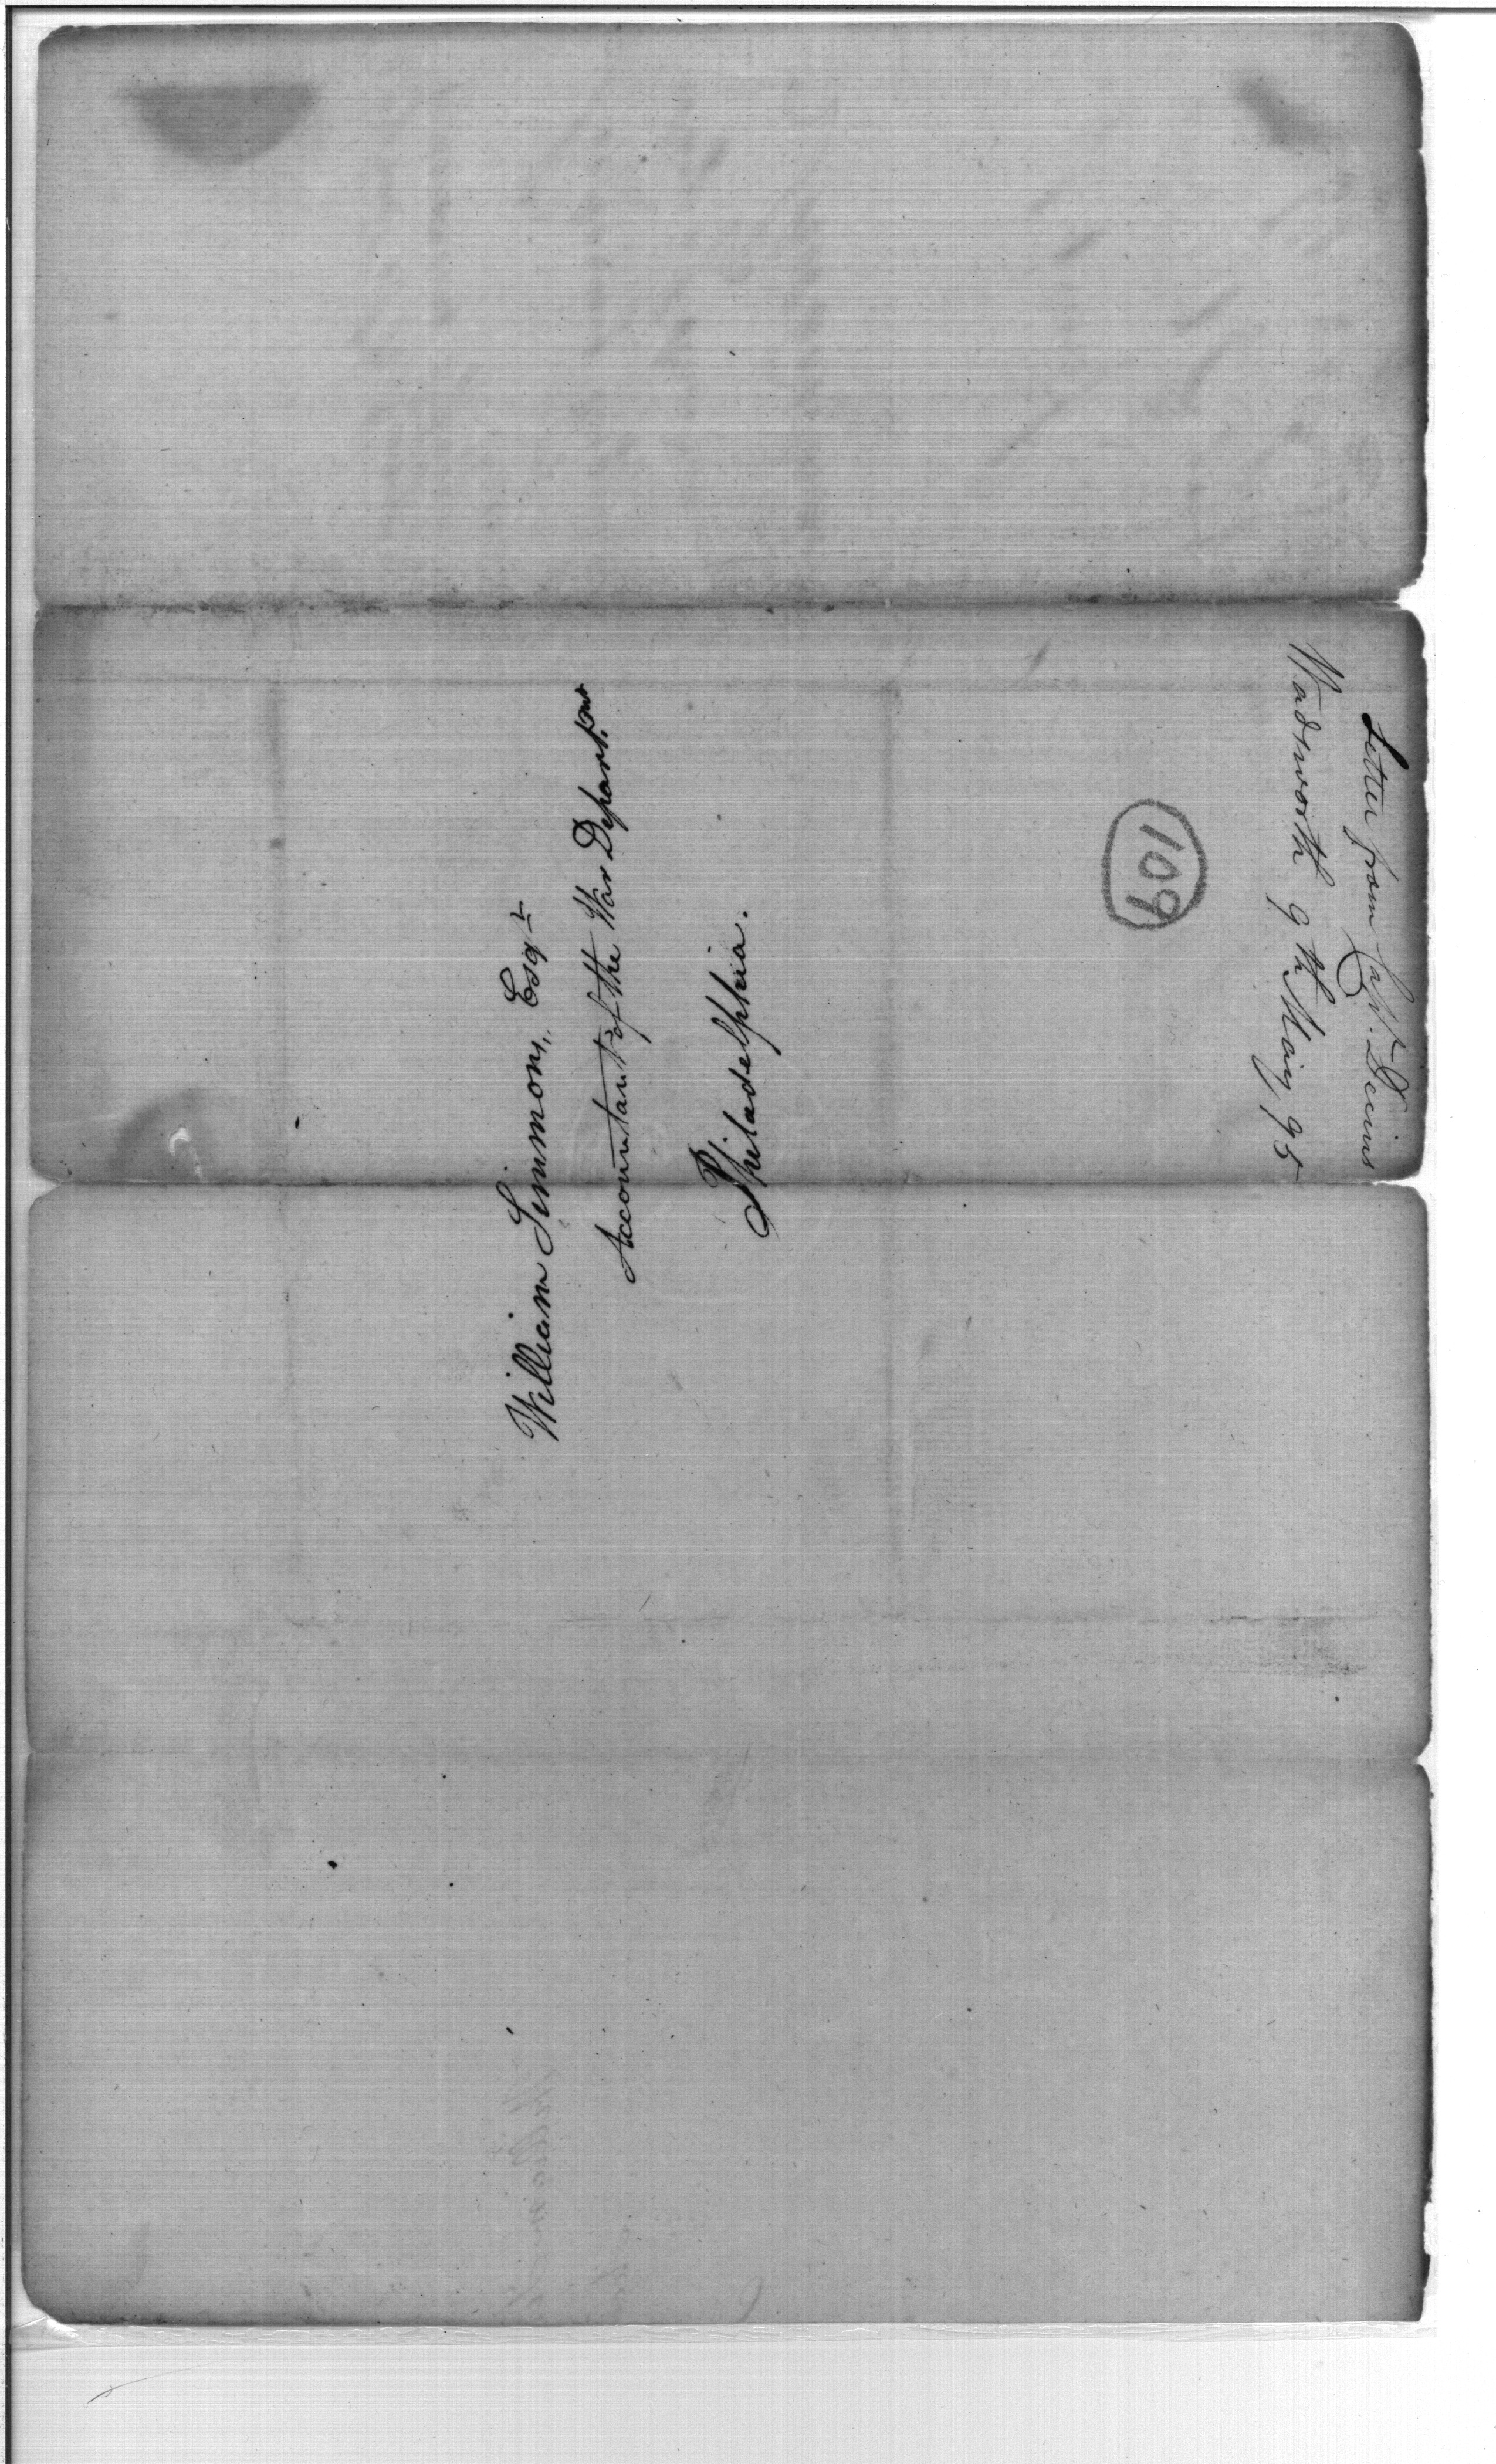 William Simmons, Esqr
Accountant of the War Departmt
Philadelphia.
Letter from Capt. Decius
Wadsworth 9th May 95
109